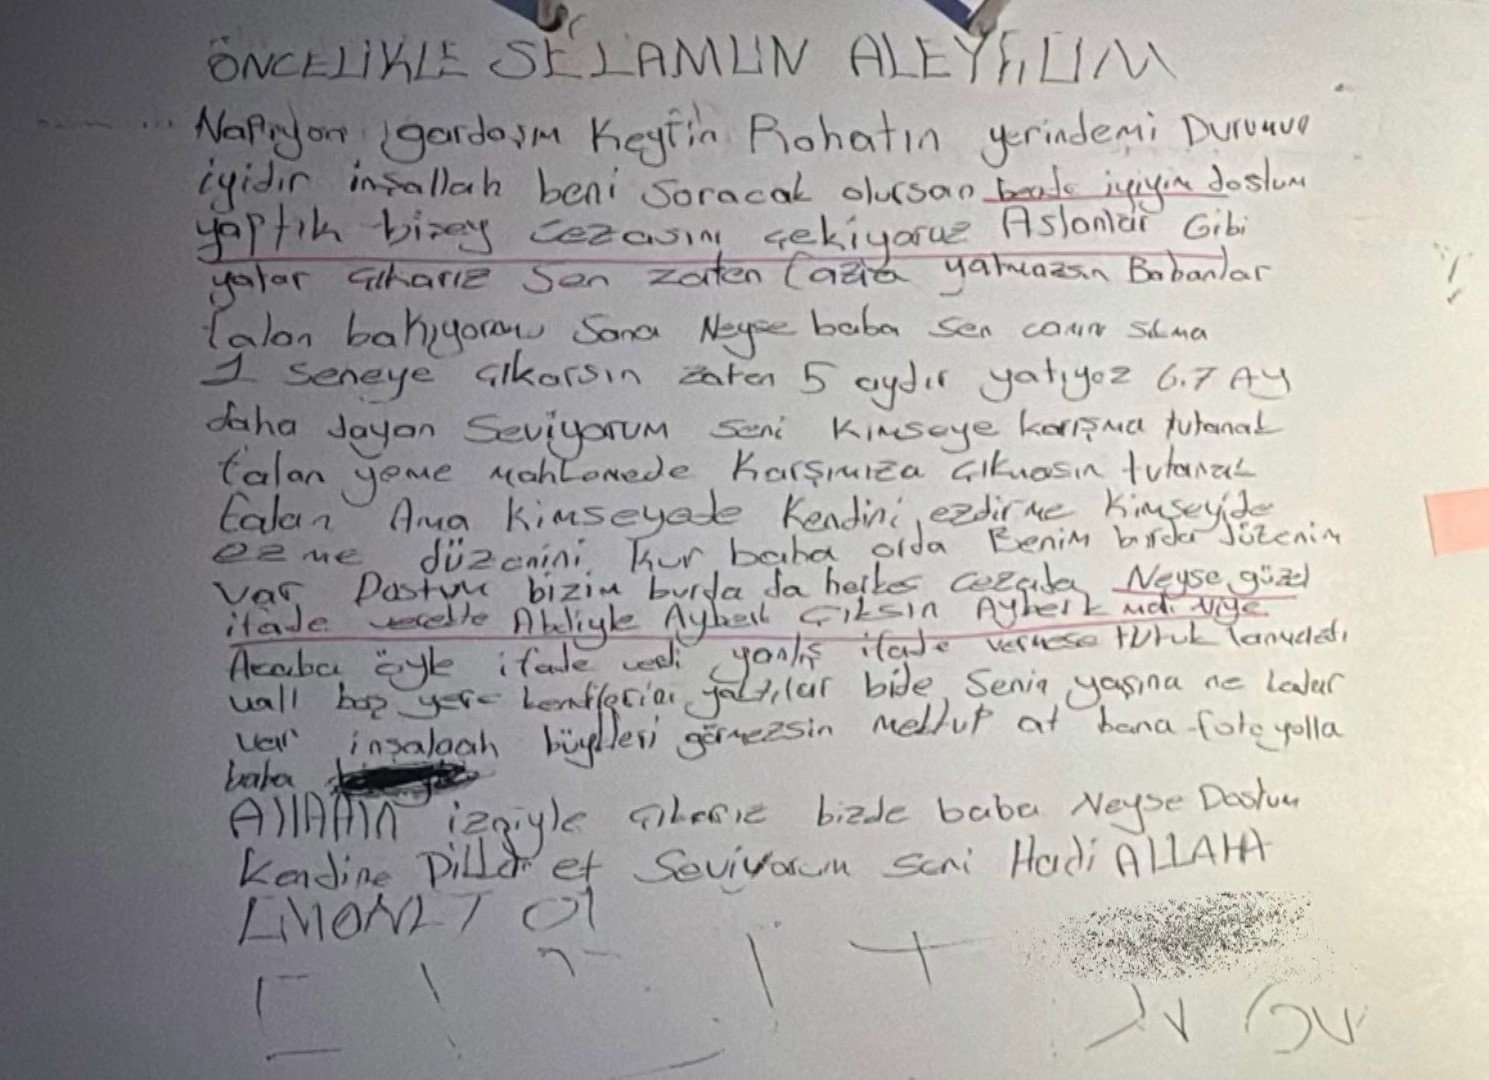 ÖNCELİKLE SELAMUN ALEYKUM
Napıyon gardaşım Keyfin Rahatın yerindemi Durumun
iyidir inşallah beni soracak olursan bende iyiyim dostum
yaptık bizey cezasını çekiyoruz Aslanlar Gibi
yatar çıkarız Sen zaten fazla yatmazsın Babanlar
falan bakıyorow Sana Neyse baba sen canın sıkma
1 Seneye çıkarsın zaten 5 aydır yatıyoz 6.7 AY
daha dayan Seviyorum seni Kimseye karışma tutanak
falan yeme mahkemede Karşımıza çıkmasın tutanak
falan Ama Kimseyede Kendini ezdirme Kimseyide
ezme düzenini kur baba orda Benim burda düzenim
var Dostum bizim burda da herkes cezada Neyse güzel
ifade Abliyle Ayberk Çıksın Ayberk niye
Acaba öyle ifade verdi yanlış ifade vermese tutuk
vall boş yere kendilerini yaktılar bide Senin yaşına ne kadar
var inşalaah büyükleri görmezsin mektup at bana foto yolla
baba
AllAHIN izniyle çıkarız bizde baba Neyse Dostum
Kendine Dikkat et Seviyorum seni Hadi ALLAHA
EMONET Ol